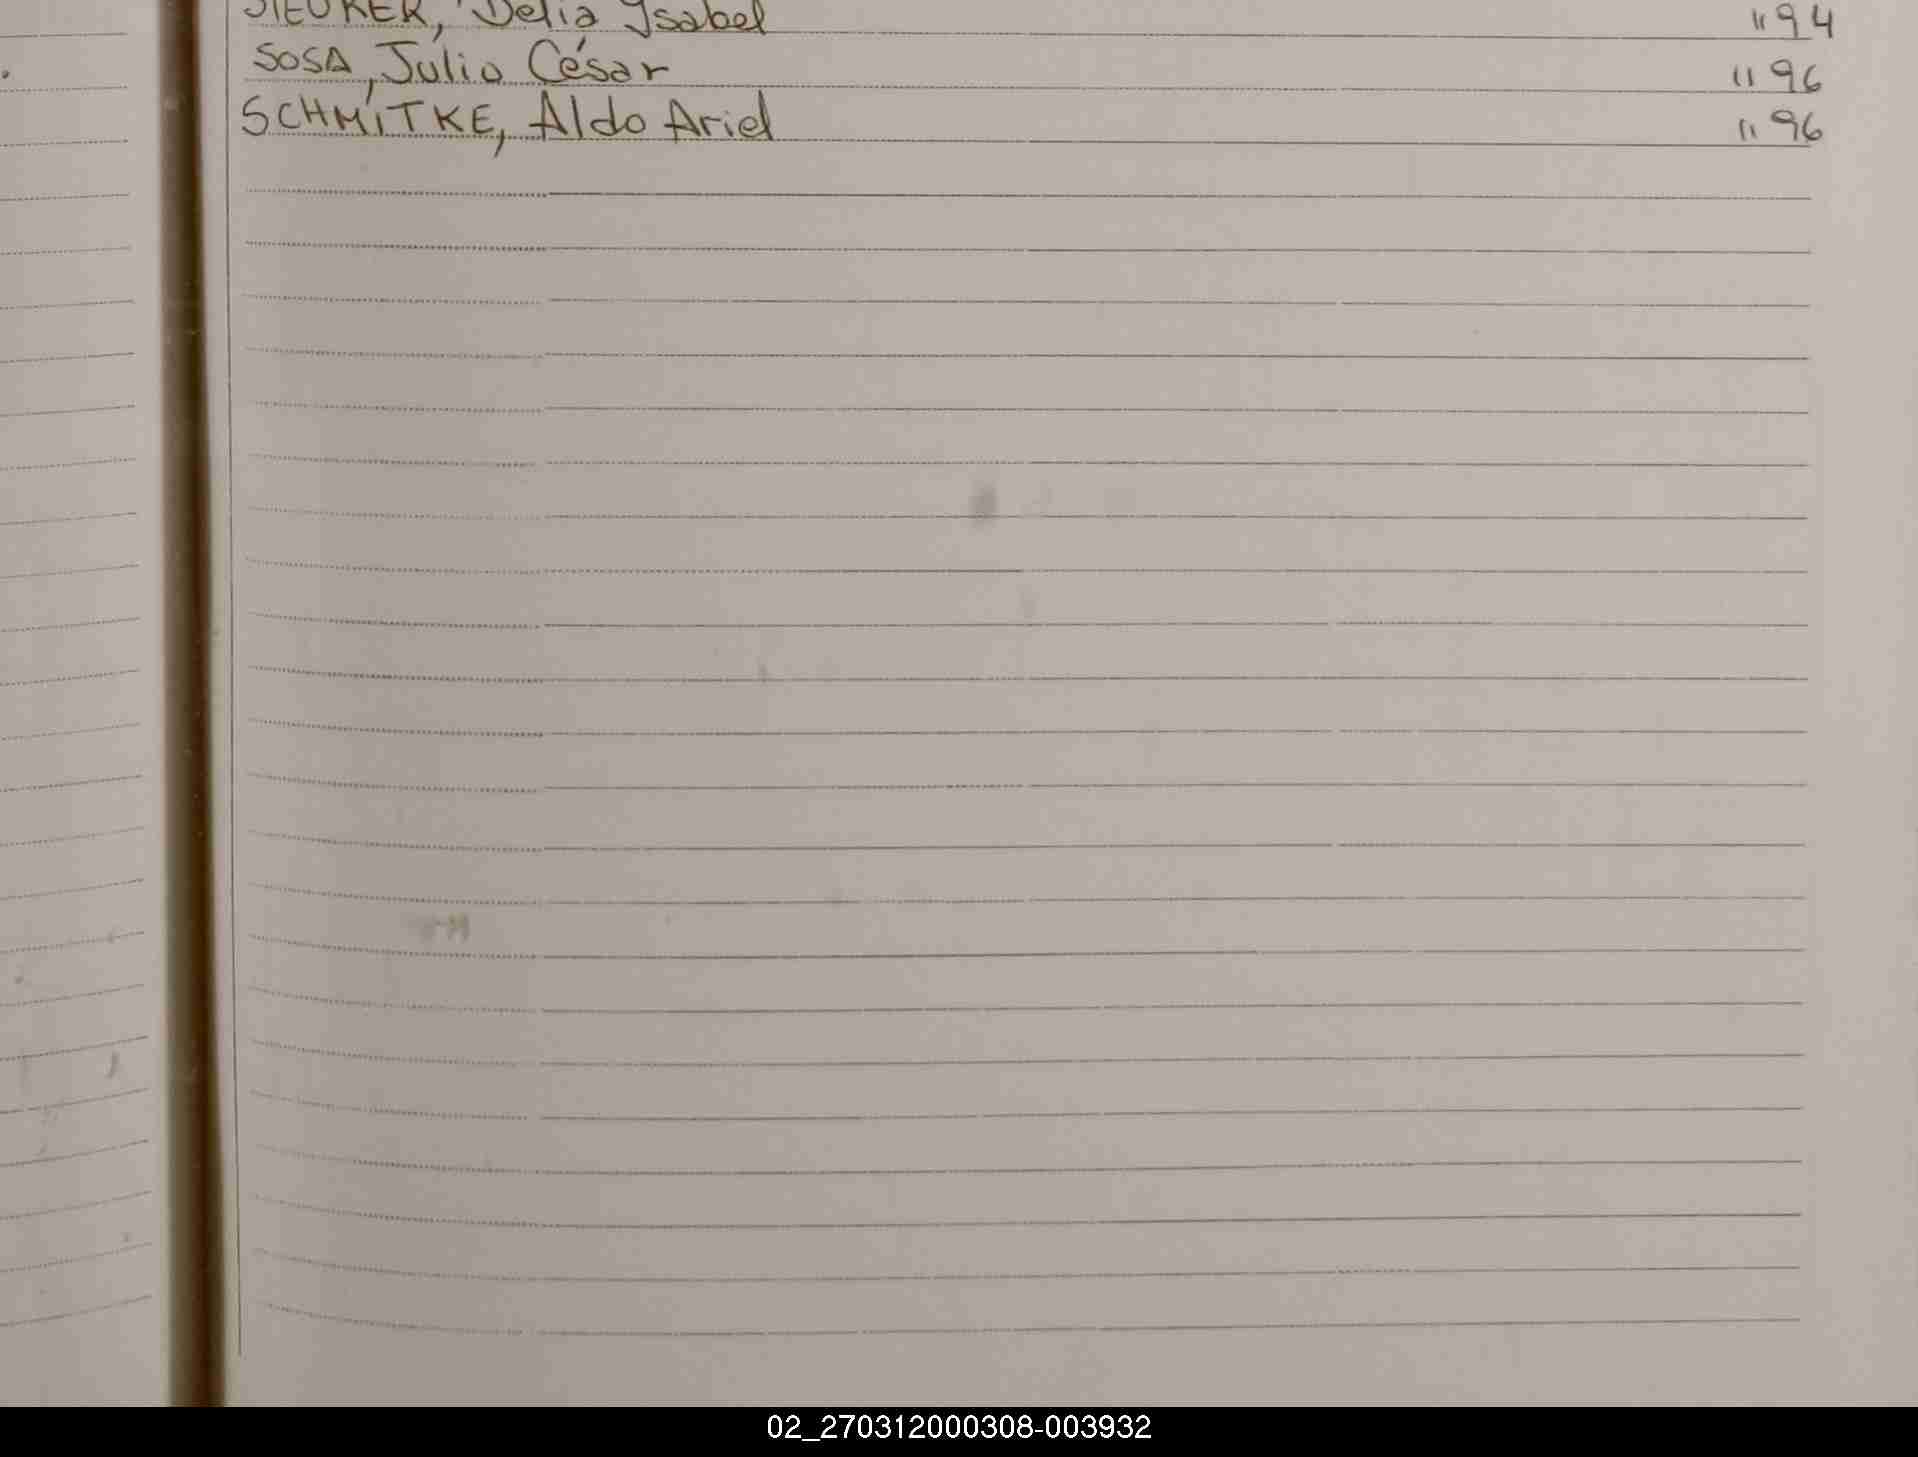 Delia Ysabel " 94
SOSA, Julio César " 96
SCHMITKE, Aldo Ariel " 96
02_270312000308-003932